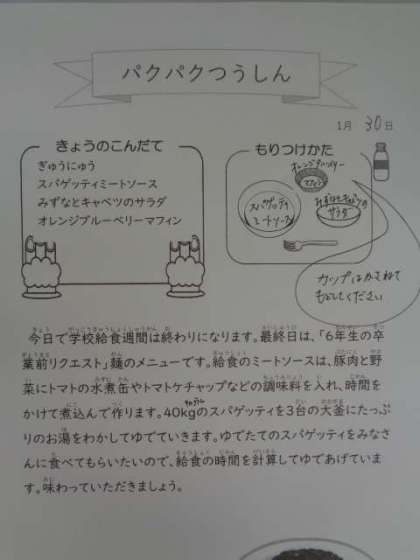 パクパクつうしん
1月 30日
きょうのこんだて
ぎゅうにゅう
スパゲッティミートソース
みずなとキャベツのサラダ
オレンジブルーベリーマフィン
もりつけかた
マフィン
スパゲッティ
ミートソース
サラダ
カップはかさねて
もどしてください
今日で学校給食週間は終わりになります。最終日は、「6年生の卒
業前リクエスト」麺のメニューです。給食のミートソースは、豚肉と野
菜にトマトの水煮缶やトマトケチャップなどの調味料を入れ、時間を
かけて煮込んで作ります。40kgのスパゲッティを3台の大釜にたっぷ
りのお湯をわかしてゆでていきます。ゆでたてのスパゲッティをみなさ
んに食べてもらいたいので、給食の時間を計算してゆであげていま
す。味わっていただきましょう。